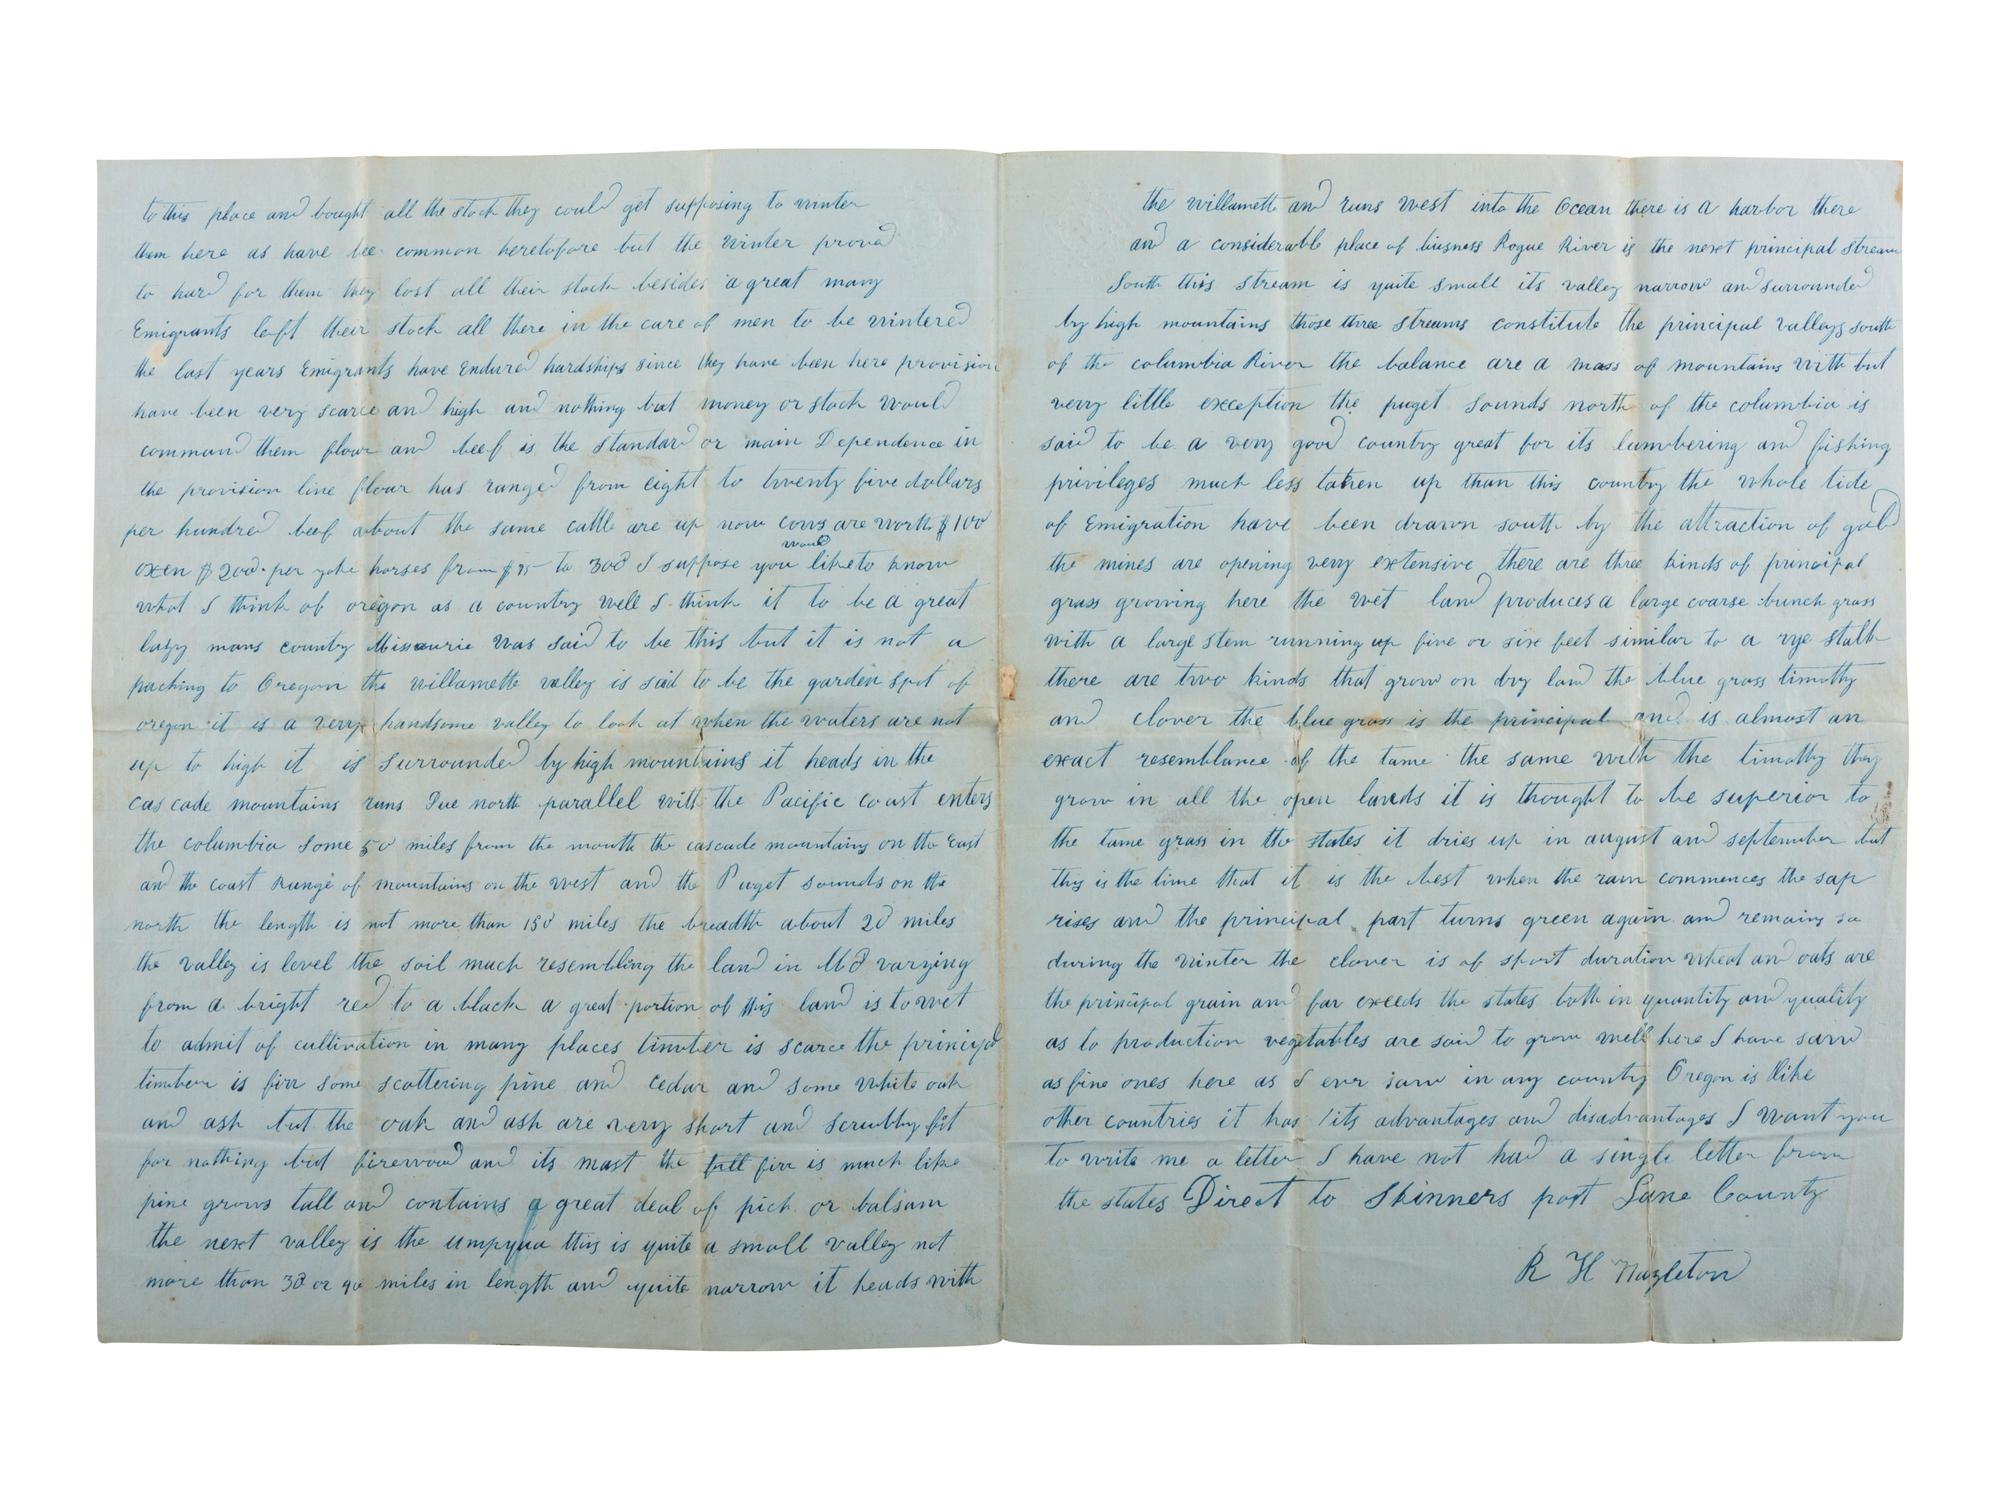 to this place and bought all the stock they could get supposing to winter
them here as have bee common heretofore but the winter proved
to hard for them they lost all their stock besides a great many
Emigrants left their stock all there in the care of men to be wintered
the last years Emigrants have Endured hardships since they have been here provision
have been very scarce and high and nothing but money or stock would
command them flour and beef is the standard or main Dependence in
the provision line flour has ranged from eight to twenty five dollars
per hundred beef about the same cattle are up now cows are worth $100
oxen $200 per yoke horses from $75 to 300 I suppose you would like to know
what I think of oregon as a country well I think it to be a great
lazy mans country Missourie was said to be this but it is not a
paching to Oregon the willamette valley is said to be the garden spot of
oregon it is a very handsome valley to look at when the waters are not
up to high it is surrounded by high mountains it heads in the
cascade mountains runs Due north parallel with the Pacific coast enters
the columbia some 50 miles from the mouth the cascade mountains on the East
and the coast Range of mountains on the west and the Puget sounds on the
north the length is not more than 150 miles the breadth about 20 miles
the valley is level the soil much resembling the land in Md varying
from a bright red to a black a great portion of this land is to wet
to admit of cultivation in many places timber is scarce the principal
timber is firr some scattering pine and cedar and some white oak
and ash but the oak and ash are very short and scrubby fit
for nothing but firewood and its mast the firr is much like
pine grows tall and contains a great deal of pich or balsam
the next valley is the umpqua this is quite a small valley not
more than 30 or 40 miles in length and quite narrow it heads with
the willamette and runs west into the Ocean there is a harbor there
and a considerable place of biusness Rogue River is the next principal stream
South this stream is quite small its valley narrow and surrounded
by high mountains those three streams constitute the principal valleys south
of the columbia River the balance are a mass of mountains with but
very little exception the puget sounds north of the columbia is
said to be a very good country great for its lumbering and fishing
privileges much less taken up than this country the whole tide
of Emigration have been drawn south by the attraction of gold
the mines are opening very extensive there are three kinds of principal
grass growing here the wet land produces a large coarse bunch grass
with a large stem running up five or six feet similar to a rye stalk
there are two kinds that grow on dry land the blue grass timothy
and clover the blue grass is the principal and is almost an
exact resemblance of the tame the same with the timothy they
grow in all the open lands it is thought to be superior to
the tame grass in the states it dries up in august and september but
this is the time that it is the best when the rain commences the sap
rises and the principal part turns green again and remains so
during the winter the clover is of short duration wheat and oats are
the principal grain and far exceeds the states both in quantity and quality
as to production vegetables are said to grow well here I have saw
as fine ones here as I ever saw in any country Oregon is like
other countries it has its advantages and disadvantages I want you
to write me a letter I have not had a single letter from
the states Direct to Skinners post Lane County
R H Hazleton